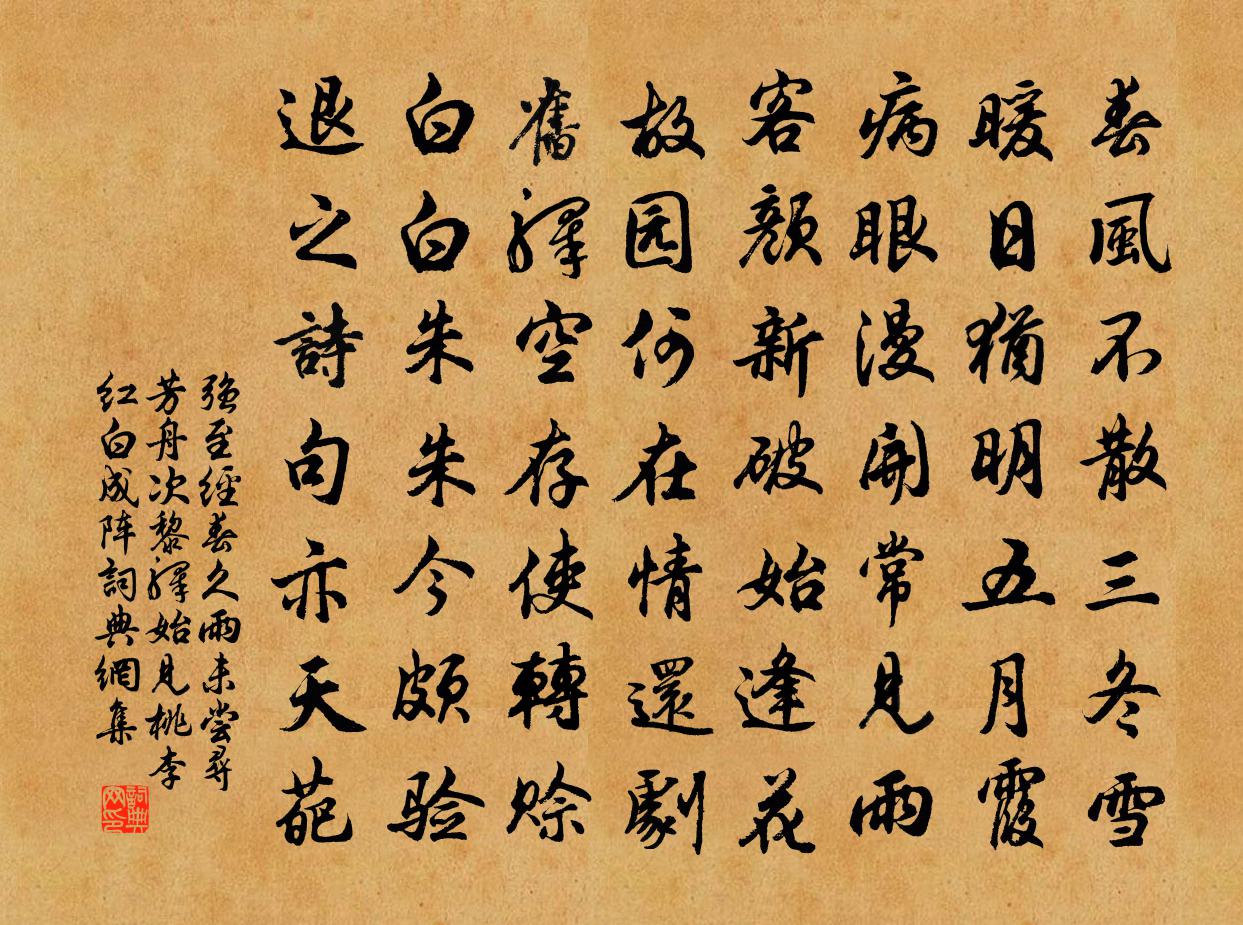 春風不散三冬雪
暖日猶明五月霞
病眼漫開常見雨
客顏新破始逢花
故园何在情還劇
舊譯空存使轉賒
白白朱朱今頗验
退之詩句亦天葩
強至經春久雨未嘗尋
芳舟次黎驛始見桃李
红白成阵詞典網集
詞典网印